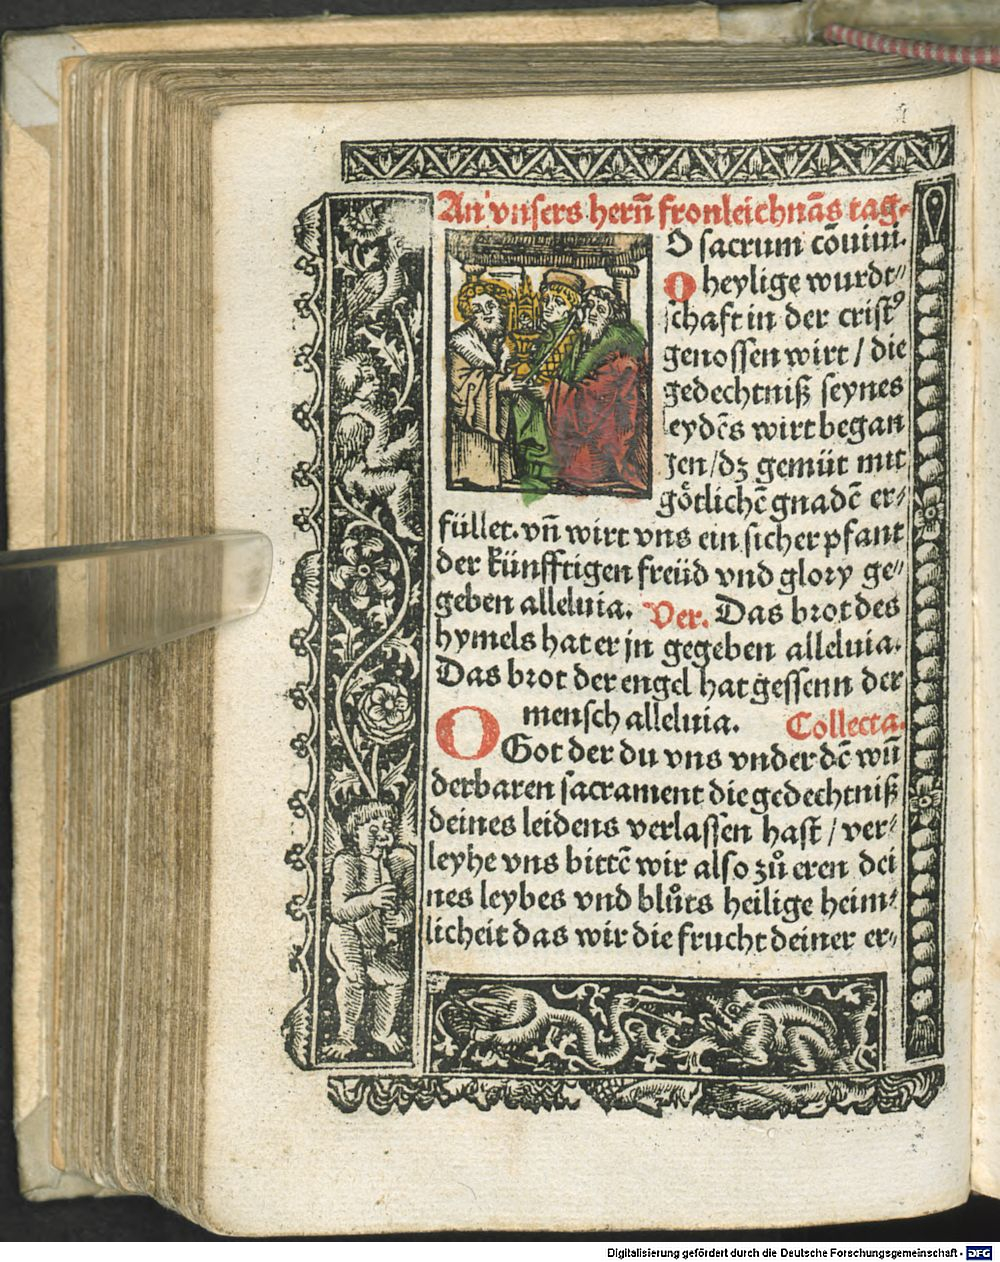 An vnsers hern̄ fronleichnās tag.
O sacrum cōuiui.
O heylige wurdt⸗
schaft in der crist⁹
genossen wirt / die
gedechtniß seynes
leydēs wirt began
gen / dz gemüt mit
götlichē gnadē er⸗
füllet. vn̄ wirt vns ein sicher pfant
der künfftigen freüd vnd glory ge⸗
geben alleluia. Ver. Das brot des
hymels hat er jn gegeben alleluia.
Das brot der engel hat gessenn der
mensch alleluia. Collecta.
O Got der du vns vnder dē wū
derbaren sacrament die gedechtniß
deines leidens verlassen hast / ver⸗
leyhe vns bittē wir also zů eren dei
nes leybes vnd blůts heilige heim⸗
licheit das wir die frucht deiner er⸗
Digitalisierung gefördert durch die Deutsche Forschungsgemeinschaft - DFG